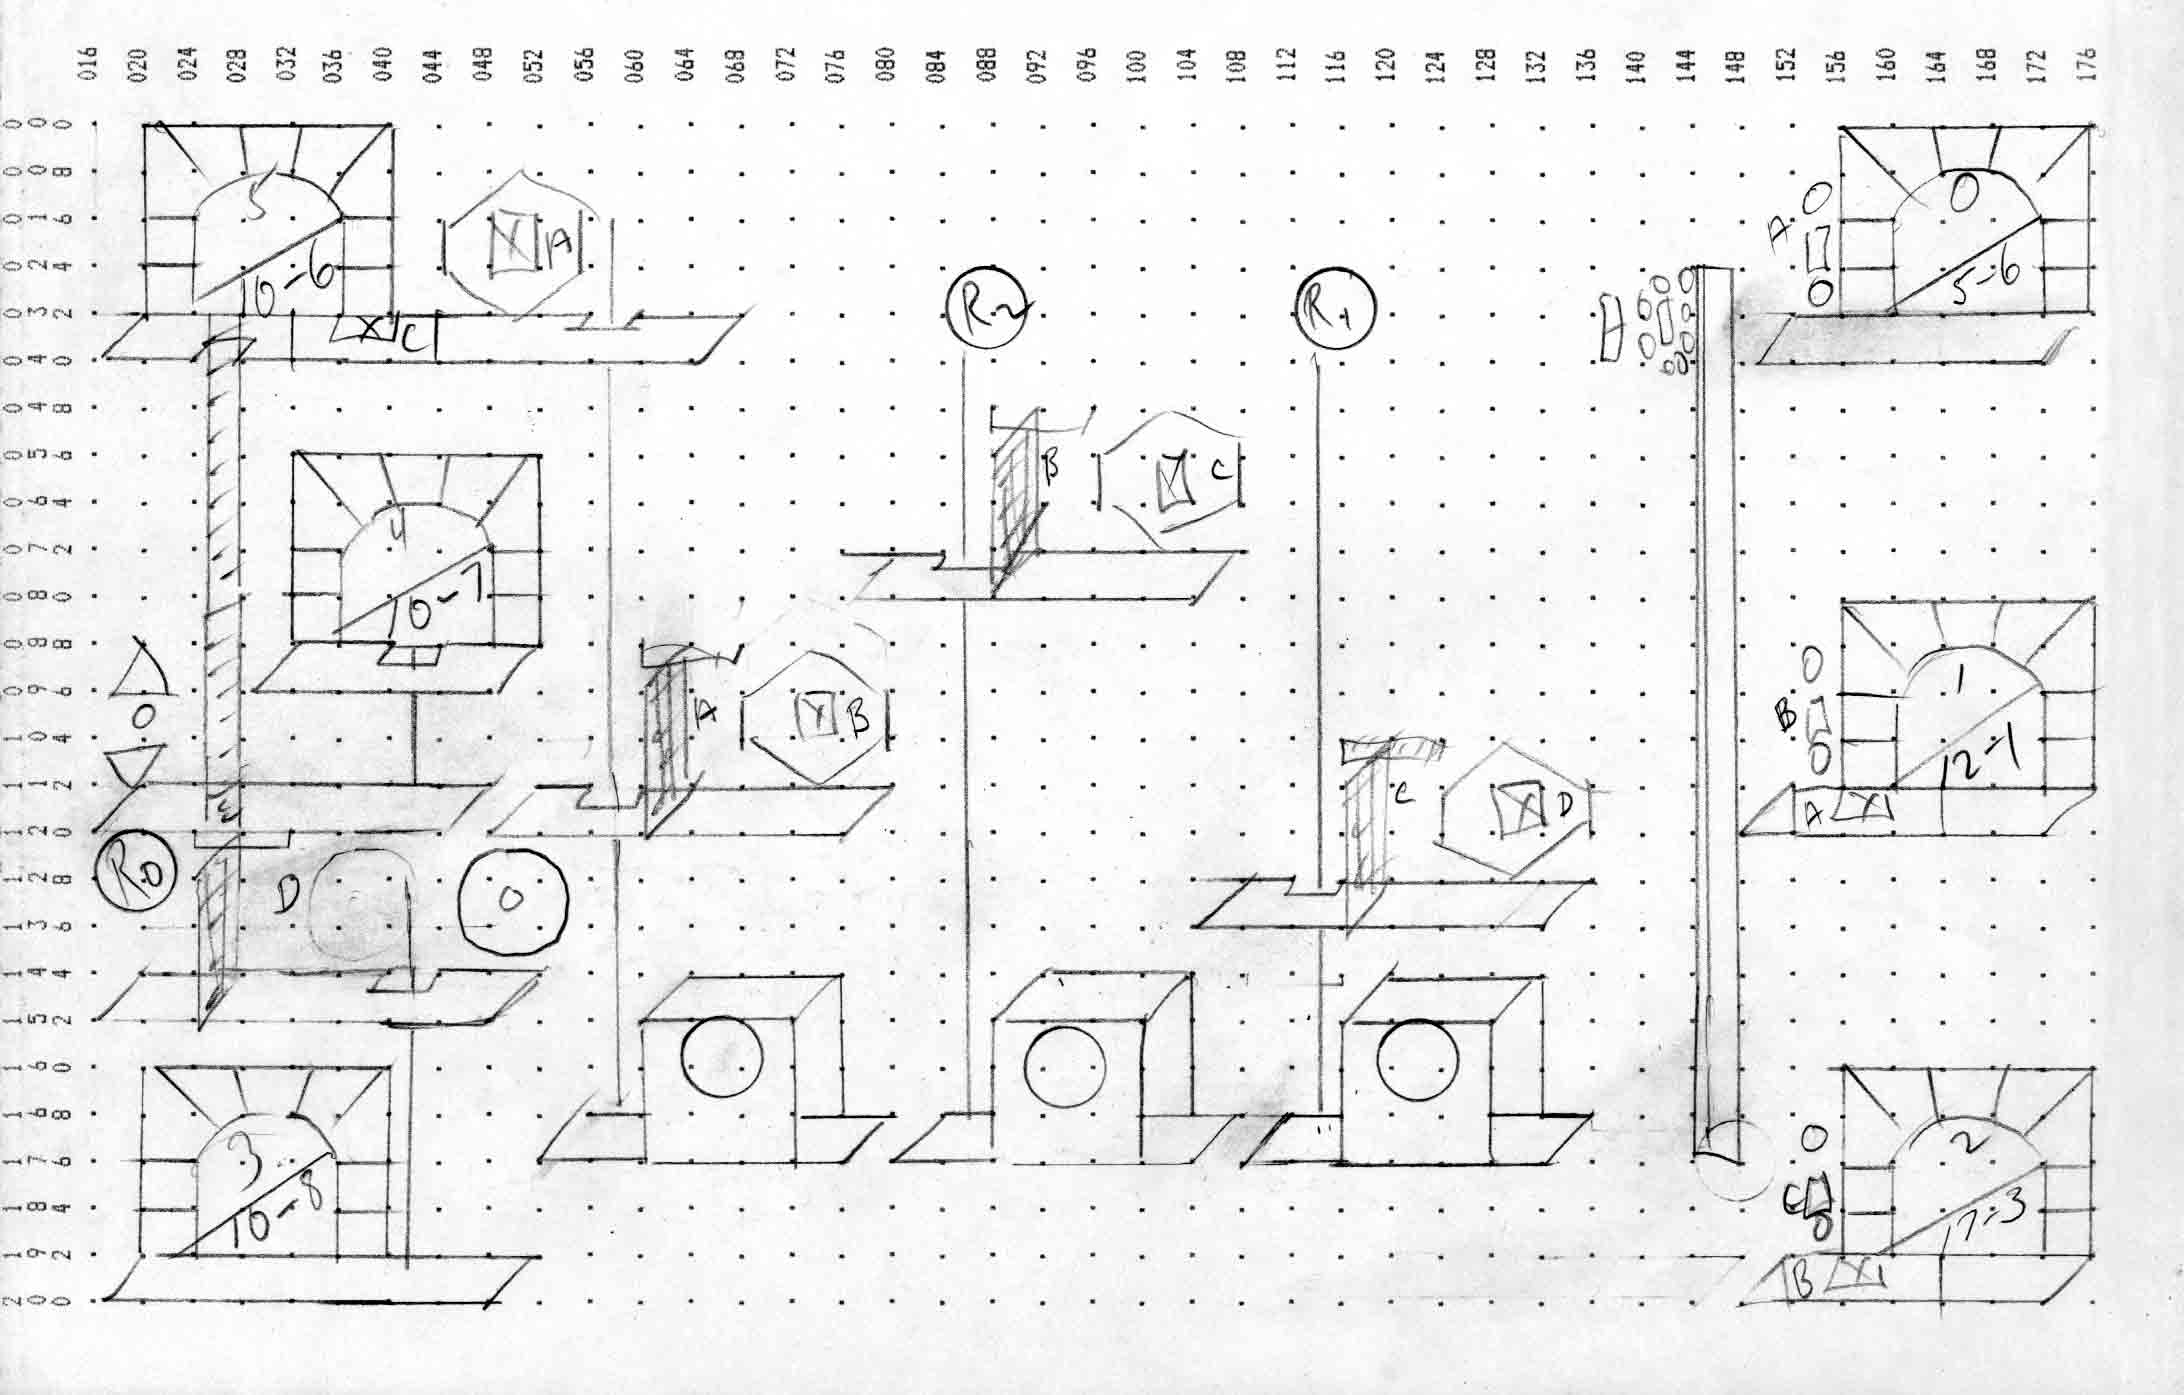 016 020 024 028 032 036 040 044 048 052 056 060 064 068 072 076 080 084 088 092 096 100 104 108 112 116 120 124 128 132 136 140 144 148 152 156 160 164 168 172 176
000
008
016
024
032
040
048
056
064
072
080
088
096
104
112
120
128
136
144
152
160
168
176
184
192
200
5
10-6
X A
X C
R2
R1
0
A
5-6
4
10-7
B
X C
A
X B
1
B
12-1
A X1
C
X D
R0
D
O
3
10-8
2
C
17-3
B X1